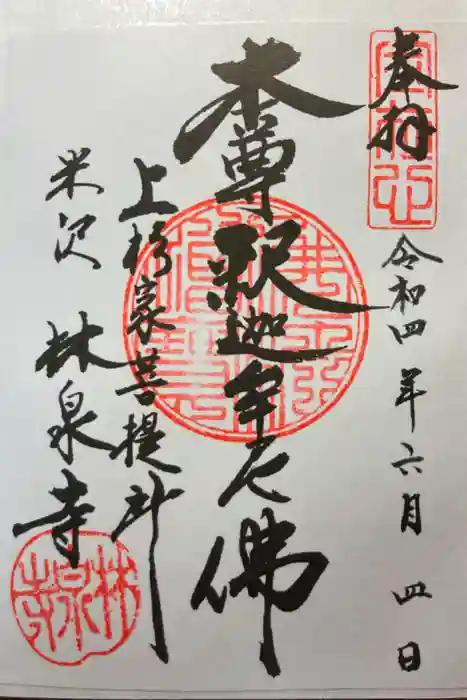 奉拝
令和四年六月四日
本尊釈迦牟尼佛
上杉家菩提所
米沢 林泉寺
林泉寺